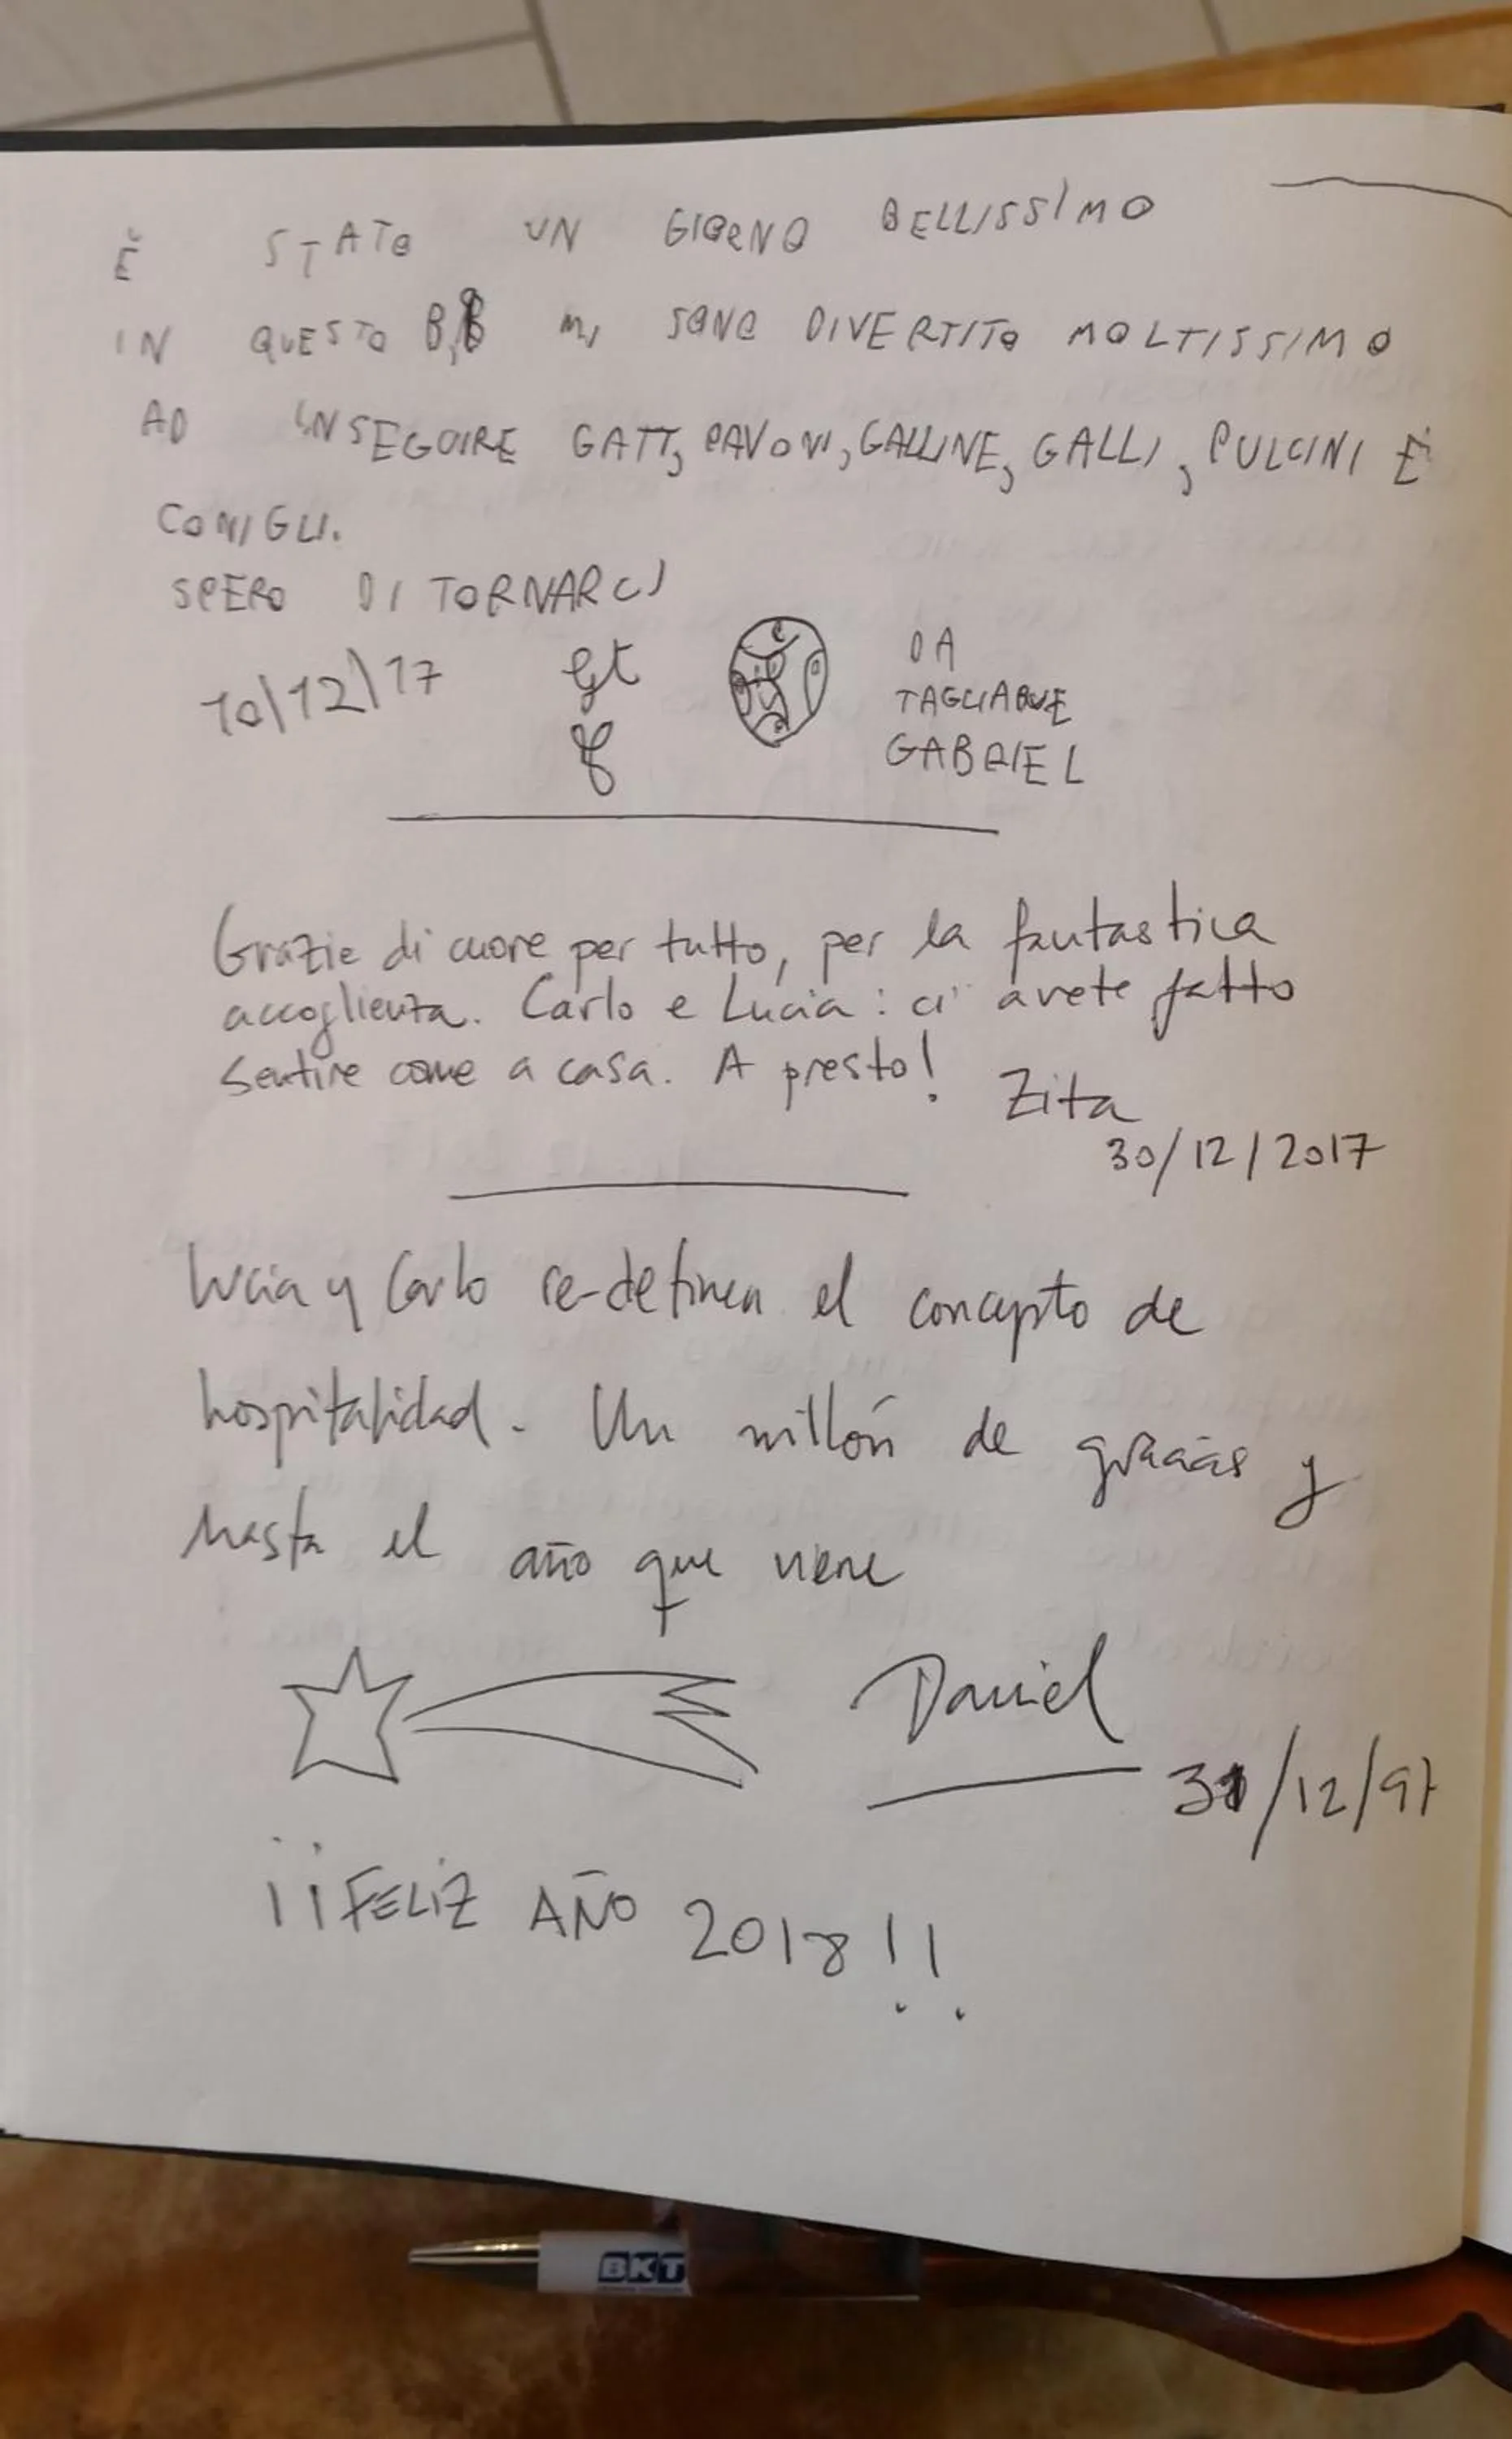 È STATO UN GIORNO BELLISSIMO
IN QUESTO B,B MI SONO DIVERTITO MOLTISSIMO
AD INSEGUIRE GATTI, PAVONI, GALLINE, GALLI, PULCINI E
CONIGLI.
SPERO DI TORNARCI
10/12/17 gt DA
TAGLIABUE
GABRIEL
Grazie di cuore per tutto, per la fantastica
accoglienza. Carlo e Lucia: ci avete fatto
sentire come a casa. A presto! Zita
30/12/2017
Lucia y Carlo re-definen el concepto de
hospitalidad. Un millón de gracias y
hasta el año que viene
Daniel
31/12/97
¡¡FELIZ AÑO 2018!!
BKT